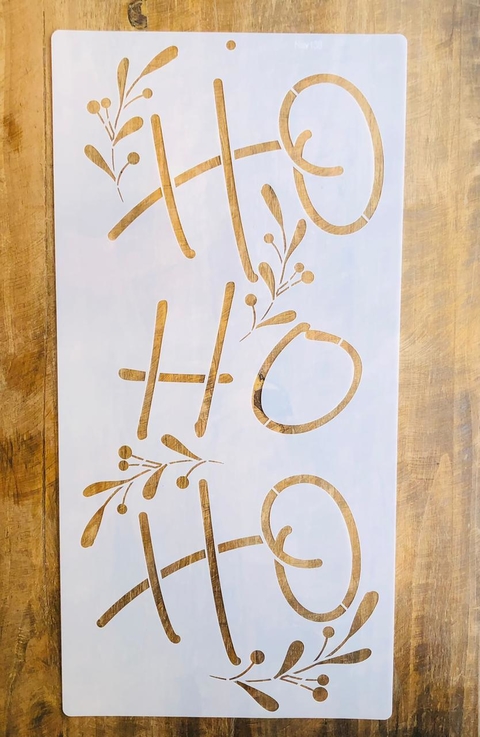 HO
HO
HO